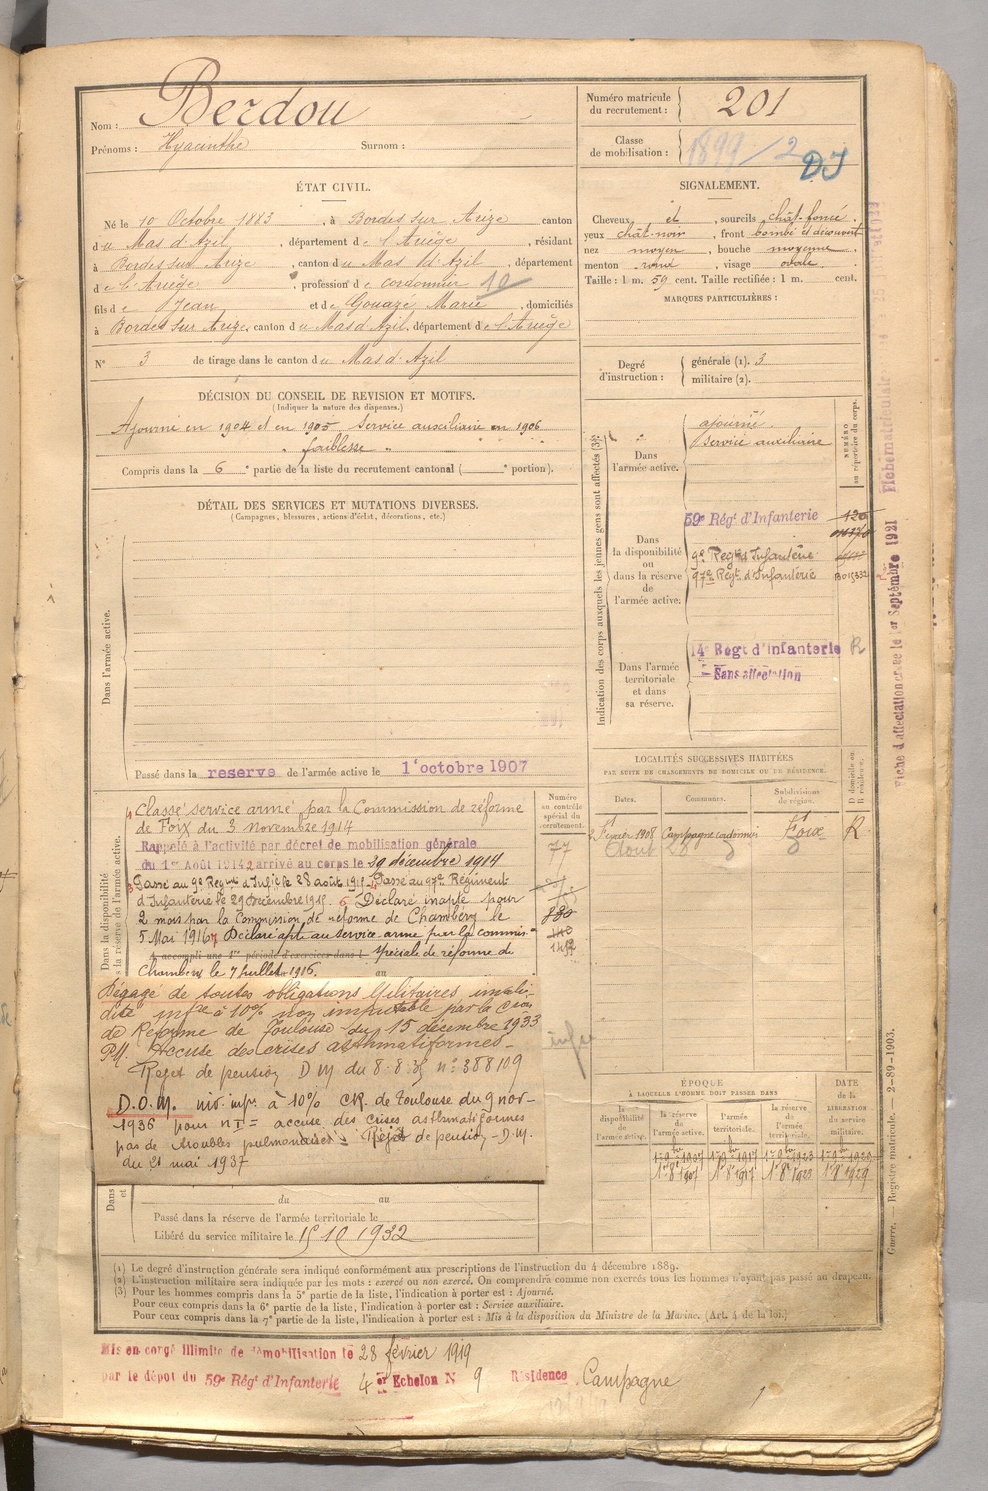 Nom : Berdou
Prénoms : Hyacinthe Surnom :
Numéro matricule du recrutement : 201
Classe de mobilisation : 1899/2 DJ
ÉTAT CIVIL.
Né le 10 Octobre 1883, à Bordes sur Arize canton
du Mas d'Azil, département de l'Ariège, résidant
à Bordes sur Arize, canton du Mas d'Azil, département
de l'Ariège, profession de cordonnier 10
fils de Jean et de Gouazé Marie, domiciliés
à Bordes sur Arize, canton du Mas d'Azil, département de l'Ariège
N° 3 de tirage dans le canton du Mas d'Azil
SIGNALEMENT.
Cheveux et, sourcils chât-foncé.
yeux chât-noir, front bombé et découvert
nez moyen, bouche moyenne
menton rond, visage ovale.
Taille : 1 m. 59 cent. Taille rectifiée : 1 m. cent.
MARQUES PARTICULIÈRES :
Degré d'instruction :
générale (1). 3
militaire (2).
DÉCISION DU CONSEIL DE REVISION ET MOTIFS.
(Indiquer la nature des dispenses.)
Ajourné en 1904 et en 1905, service auxiliaire en 1906
" faiblesse "
Compris dans la 6e partie de la liste du recrutement cantonal ( e portion).
DÉTAIL DES SERVICES ET MUTATIONS DIVERSES.
(Campagnes, blessures, actions d'éclat, décorations, etc.)
Dans l'armée active.
Passé dans la reserve de l'armée active le 1 octobre 1907
Indication des corps auxquels les jeunes gens sont affectés (3).
NUMÉRO au répertoire du corps.
Dans l'armée active.
ajourné.
Service auxiliaire
Dans la disponibilité ou dans la réserve de l'armée active.
59e Régt d'Infanterie 120
9e Regt d'Infanterie
97e Regt d'Infanterie B015332
Dans l'armée territoriale et dans sa réserve.
14e Regt d'Infanterie R
Sans affectation
LOCALITÉS SUCCESSIVES HABITÉES
PAR SUITE DE CHANGEMENTS DE DOMICILE OU DE RÉSIDENCE.
Dates. Communes. Subdivisions de région. D domicile ou R résidence.
2 Février 1908 Campagne cordonnier Foix R
Numéro au contrôle spécial du recrutement.
77
880
140
Dans la disponibilité
la réserve de l'armée active.
1 Classé service armé par la Commission de réforme
de Foix du 3 novembre 1914
Rappelé à l'activité par décret de mobilisation générale
du 1er Août 1914 2 arrivé au corps le 29 décembre 1914
3 Passé au 9e Regmt d'Infie le 28 août 1915 4 Passé au 97e Régiment
d'Infanterie le 29 Décembre 1915. 6 Déclaré inapte pour
2 mois par la Commission de réforme de Chambéry le
5 Mai 1916 7 Déclaré apte au service armé par la commison
A accompli une 1re période d'exercices dans l spéciale de réforme de
Chambéry le 7 juillet 1916. au
Dégagé de toutes obligations Militaires invali-
dité infre à 10% non imputable par la Cion
de Réforme de Toulouse du 15 décembre 1933
PM Accuse des crises asthmatiformes -
Rejet de pension DM du 8.8.35 n° 388109
D.O.M. inv. infr. à 10% CR. de Toulouse du 9 nov-
1936 pour n I = accuse des crises asthmatiformes
pas de troubles pulmonaires. Rejet de pension - D.M.
du 21 mai 1937
du au
Passé dans la réserve de l'armée territoriale le
Libéré du service militaire le 15 10 1932
ÉPOQUE
À LAQUELLE L'HOMME DOIT PASSER DANS
DATE de la LIBÉRATION du service militaire.
la disponibilité de l'armée active. la réserve de l'armée active. l'armée territoriale. la réserve de l'armée territoriale.
1er 9bre 1907 1er 9bre 1917 1er 9bre 1923 1er 9bre 1929
1er 8bre 1907 1er 8bre 1917 1er 8bre 1923 1er 8bre 1929
(1) Le degré d'instruction générale sera indiqué conformément aux prescriptions de l'instruction du 4 décembre 1889.
(2) L'instruction militaire sera indiquée par les mots : exercé ou non exercé. On comprendra comme non exercés tous les hommes n'ayant pas passé au drapeau.
(3) Pour les hommes compris dans la 5e partie de la liste, l'indication à porter est : Ajourné.
Pour ceux compris dans la 6e partie de la liste, l'indication à porter est : Service auxiliaire.
Pour ceux compris dans la 7e partie de la liste, l'indication à porter est : Mis à la disposition du Ministre de la Marine. (Art. 4 de la loi.)
Mis en congé illimité de démobilisation le 28 février 1919
par le dépot du 59e Régt d'Infanterie 4er Echelon N 9 Résidence Campagne
Fiche d'affectation créée le 1er Septembre 1921
Fiche matriculaire
Guerre. — Registre matricule. — 2-89-1903.